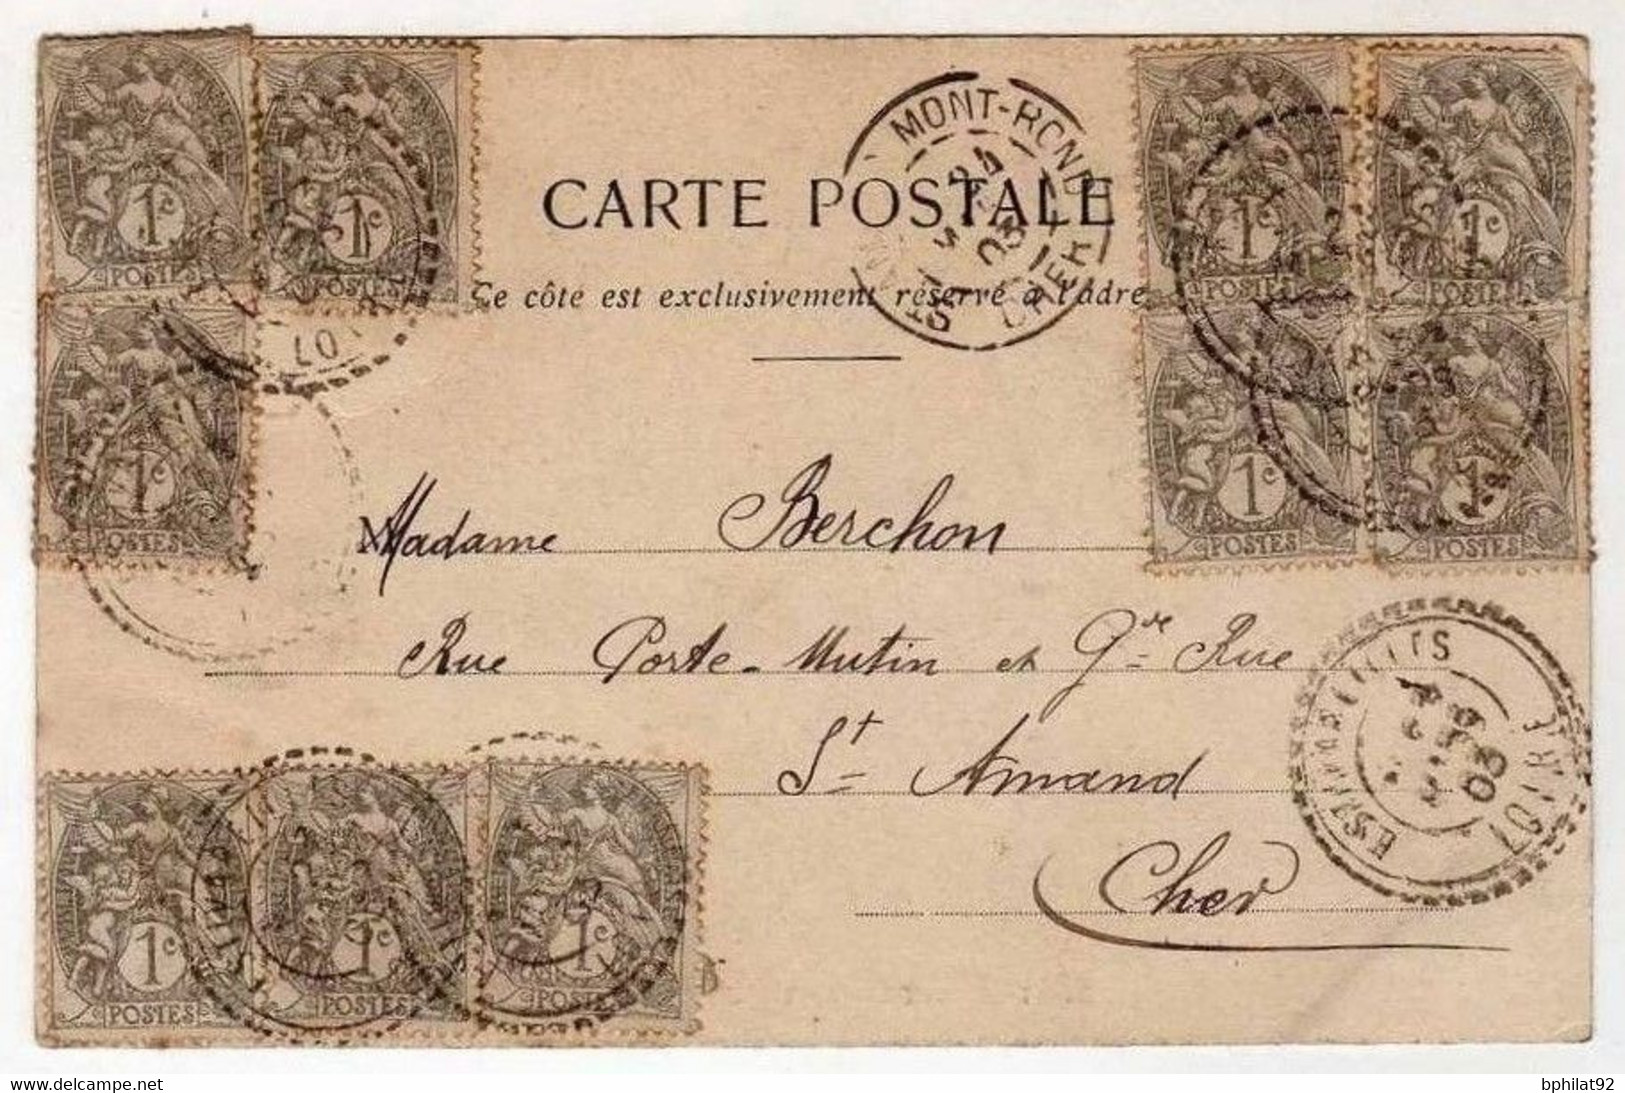 CARTE POSTALE
Ce côté est exclusivement réservé à l'adre
MONT-ROND
CHER
03
1c
POSTES
1c
1c
POSTES
1c
POSTES
1c
POSTES
1c
POSTES
1c
POSTES
Madame Berchon
Rue Porte-Mutin et Gde Rue
St Amand
Cher
LOIRET
03
1c
POSTES
1c
POSTES
1c
POSTES
delcampe.net
bphilat92